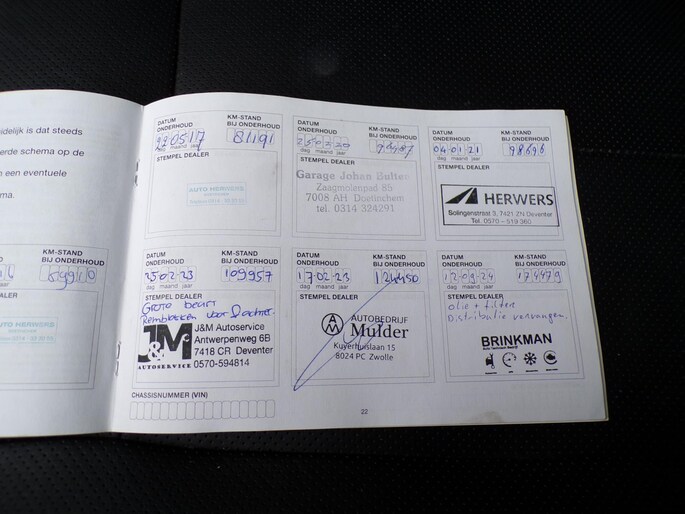 idelijk is dat steeds
erde schema op de
n een eventuele
ma.
KM-STAND
BIJ ONDERHOUD
jaar
ALER
AUTO HERWERS
DATUM ONDERHOUD
KM-STAND BIJ ONDERHOUD
22 05 17
81191
dag maand jaar
STEMPEL DEALER
AUTO HERWERS
DATUM ONDERHOUD
KM-STAND BIJ ONDERHOUD
25 02 20
dag maand jaar
STEMPEL DEALER
Garage Johan Bulten
Zaagmolenpad 85
7008 AH Doetinchem
tel. 0314 324291
DATUM ONDERHOUD
KM-STAND BIJ ONDERHOUD
04 01 21
98696
dag maand jaar
STEMPEL DEALER
HERWERS
Solingenstraat 3, 7421 ZN Deventer
Tel. 0570 - 519 360
DATUM ONDERHOUD
KM-STAND BIJ ONDERHOUD
25 02 23
109957
dag maand jaar
STEMPEL DEALER
Grote beurt
Remblokken voor &achter.
J&M
AUTOSERVICE
J&M Autoservice
Antwerpenweg 6B
7418 CR Deventer
0570-594814
DATUM ONDERHOUD
KM-STAND BIJ ONDERHOUD
17 02 23
124450
dag maand jaar
STEMPEL DEALER
AUTOBEDRIJF
Mulder
Kuyerhuislaan 15
8024 PC Zwolle
DATUM ONDERHOUD
KM-STAND BIJ ONDERHOUD
12 09 24
174479
dag maand jaar
STEMPEL DEALER
olie + filter
Distributie vervangen.
BRINKMAN
CHASSISNUMMER (VIN)
22